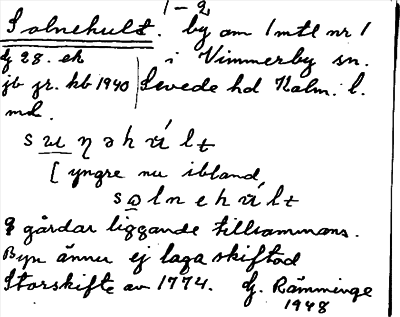 1-2
Solnehult. by om 1 mtl nr 1
G 28. ek i Vimmerby sn.
jb jr. kb 1940 Sevede hd Kalm. l.
md.
s ɯ ŋ ə h ú l t
[ yngre nu ibland,
s ω l n e h ú l t
8 gårdar liggande tillsammans.
Byn ännu ej laga skiftad
Storskifte av 1774. G. Rämminge
1948